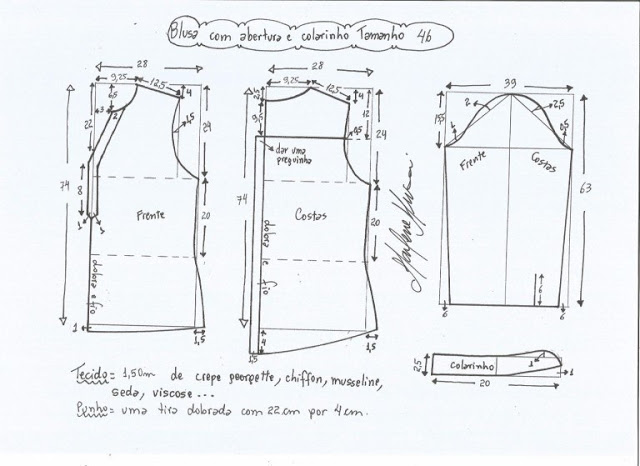 Blusa com abertura e colarinho Tamanho 46
28
9,25
12,5
4
6,5
3
2
1,5
22
24
74
8
1
1
Frente
20
dobra e fio
1
1,5
28
9,25
12,5
4
2,5
9,5
12
0,5
dar uma
preguinha
24
74
Costas
20
dobra e fio
1,5
4
1,5
39
2
2,5
15,5
1
0,5
Frente
Costas
63
6
6
6
2,5
Colarinho
1
1
20
Tecido = 1,50m de crepe georgette, chiffon, musseline,
seda, viscose...
Punho = uma tira dobrada com 22 cm por 4 cm.